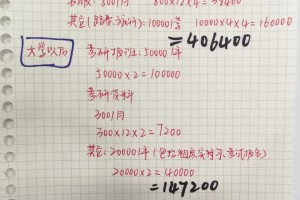 800×12×4=38400
其它(路费、旅行):10000/年 10000×4×4=160000
=406400
大学以下
考研报班:50000/年
50000×2=100000
考研资料
300/月
300×12×2=7200
其它:20000/年(包括租房、考试报名)
20000×2=40000
=147200